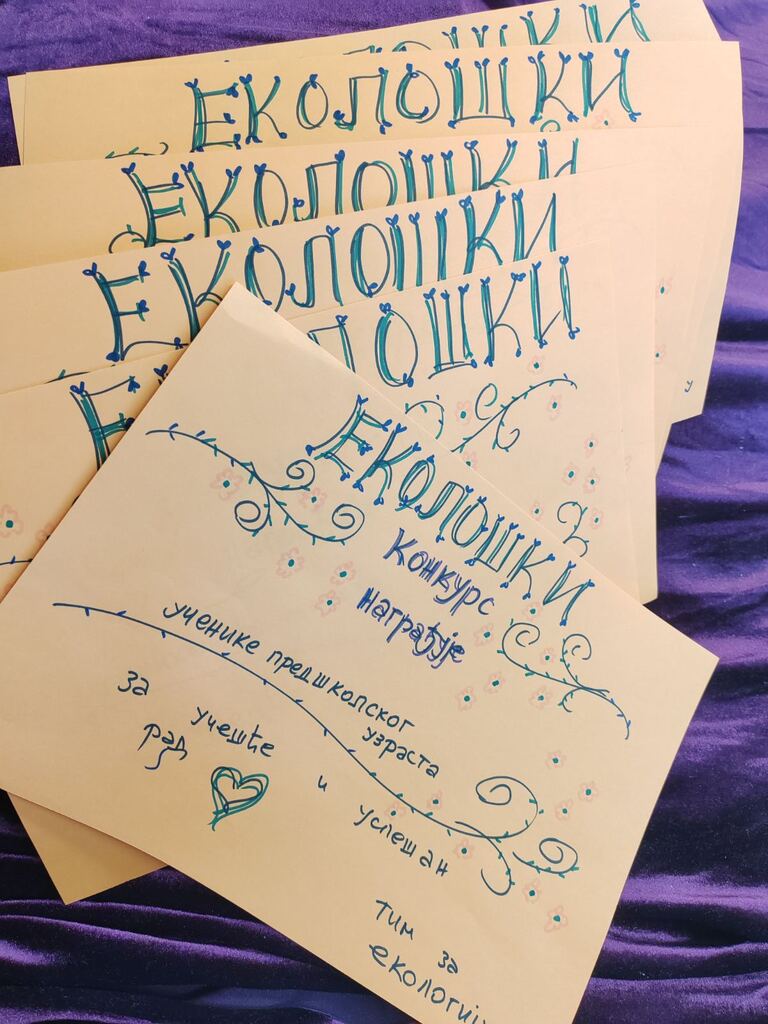 ЕКОЛОШКИ
ЕКОЛОШКИ
ЕКОЛОШКИ
ЕКОЛОШКИ
КОНКУРС
награђује
ученике предшколског
узраста
за учешће и успешан
рад
тим за
екологију